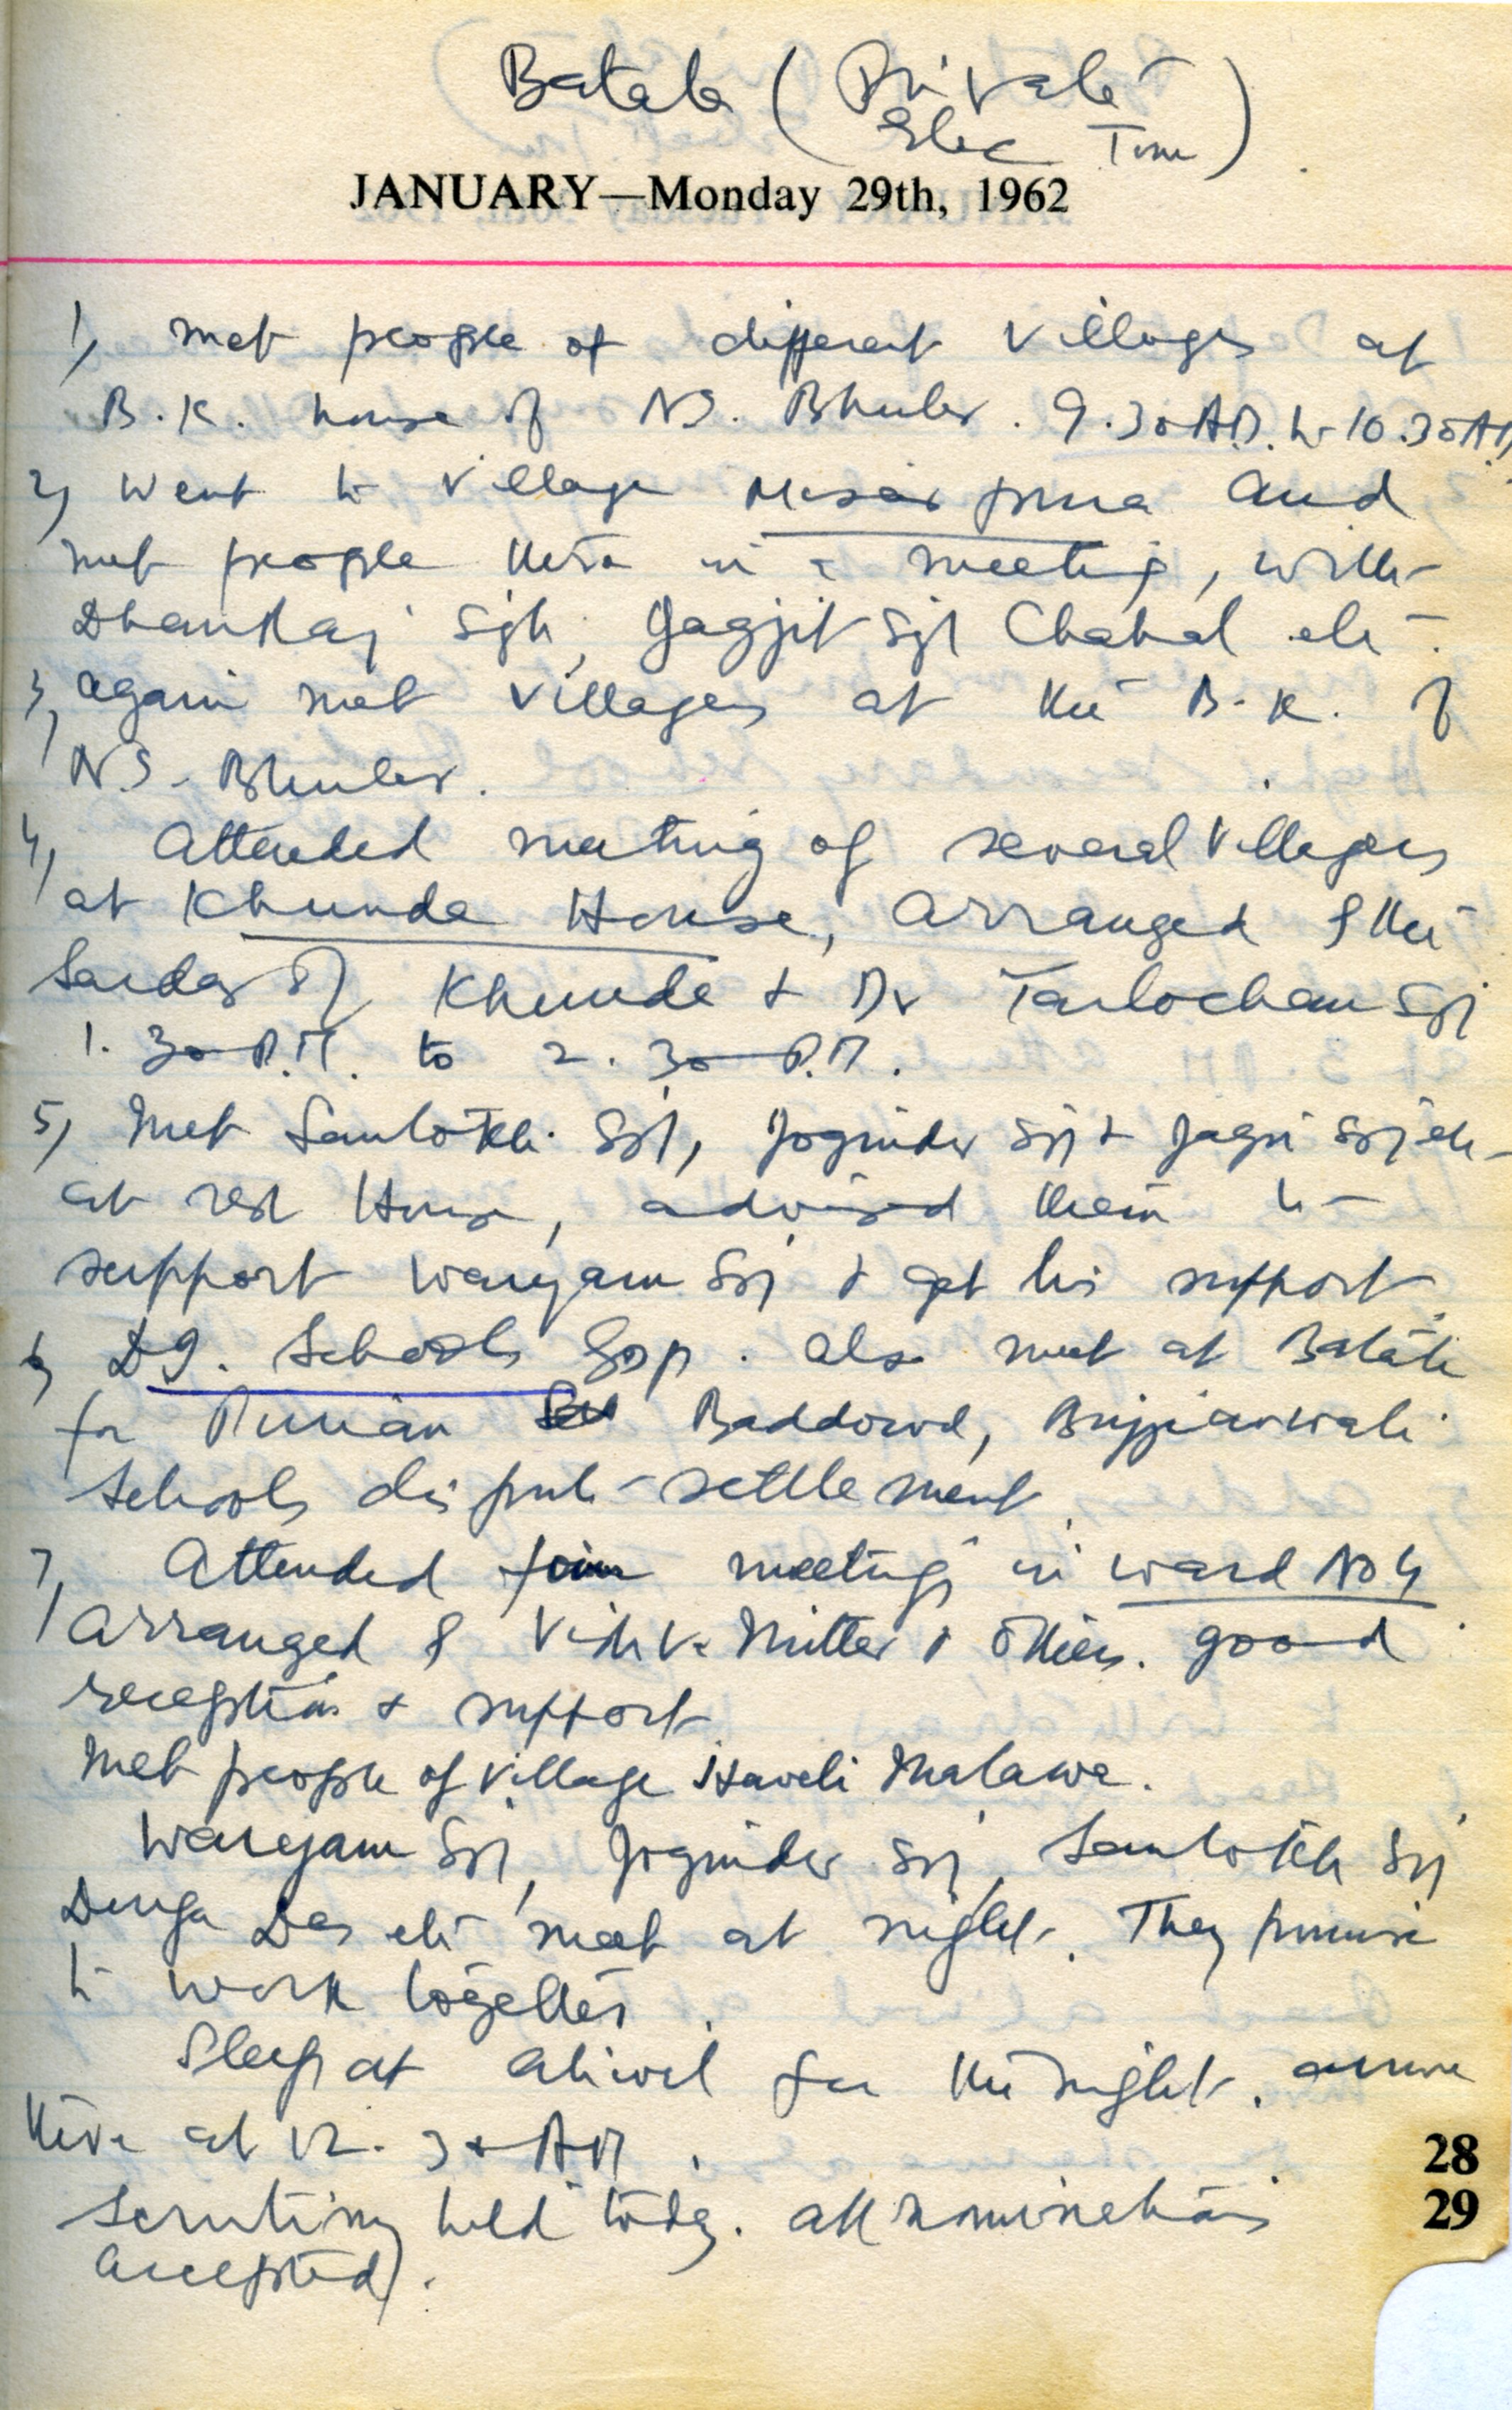 Batala (Private
Elec Tour)
JANUARY—Monday 29th, 1962
1) met people of different villages at
B.K. house of NS. Bhuler. 9.30 A.M. to 10.30 A.M
2) went to village pura and
met people there in a meeting, with
Dhanraj Sgh, Jagjit Sgh Chahal etc.
3) again met villagers at the B.K. of
NS. Bhuler.
4) Attended meeting of several villagers
at Khunda House, arranged by the
Sardar of Khunda & Dr Tarlochan Sgh
1.30 P.M. to 2.30 P.M.
5) Met Santokh Sgh, Joginder Sgh & Jagir Sgh etc
at rest House, advised them to
support Waryam Sgh & get his support.
6) D I. Schools Gsp. also met at Batala
for Baddowal,
Schools dispute settlement.
7) Attended four meetings in ward No 4
arranged by Vidya Mitter & others. good
reception & support
Met people of village Haveli
Waryam Sgh, Joginder Sgh, Santokh Sgh
Durga Das etc meet at night. They promise
to work together.
Sleep at Aliwal for the night. arrive
there at 12.30 AM.
Scrutiny held today. all nominations
accepted.
28
29